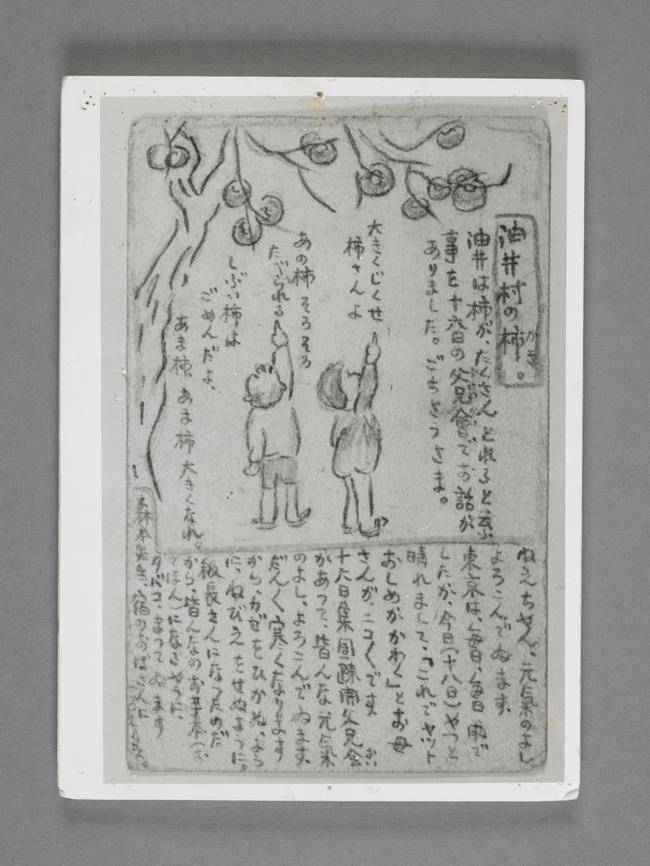 油井村の柿。
かき
油井は柿が、たくさんとれると云ふ
事を十六日の父兄會でお話が
ありました。ごちさうさま。
大きくじくせ
柿さんよ
あの柿そろそろ
たべられる
しぶい柿は
ごめんだよ、
あま柿、あま柿大きくなれ。
ねえちやん、元氣のよし
よろこんでゐます。
東京は、毎日、毎日雨で
したが、今日(十八日)やつと
晴れまして、「これでヤット
おしめがかわく」とお母
さんが、ニコ〱です
十六日集團疎開父兄会
があつて、皆んな元氣
のよし、よろこんでゐます、
だん〱寒くなります
から、カゼをひかぬ、よう
に、ねびえをせぬように。
級長さんになつたのだ
から、皆んなのお手本(お
てほん)になるやうに、
タバコ、まつてゐます
森本先生、宿のおばさんに